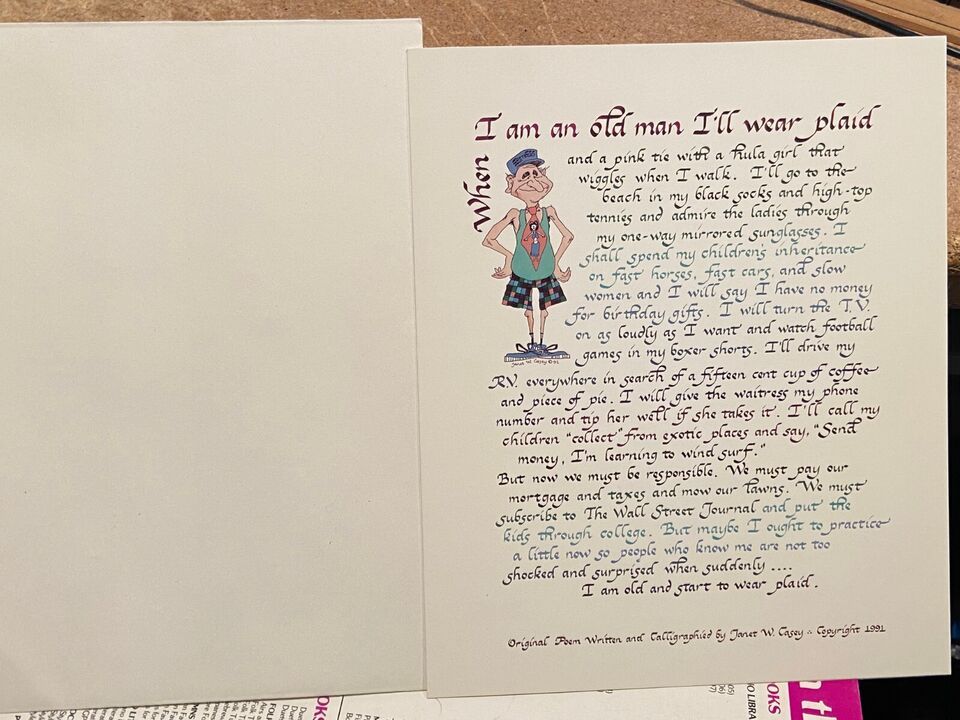 When I am an old man I'll wear plaid
and a pink tie with a hula girl that
wiggles when I walk. I'll go to the
beach in my black socks and high-top
tennies and admire the ladies through
my one-way mirrored sunglasses. I
shall spend my children's inheritance
on fast horses, fast cars, and slow
women and I will say I have no money
for birthday gifts. I will turn the T.V.
on as loudly as I want and watch football
games in my boxer shorts. I'll drive my
Janet W. Casey © 91
R.V. everywhere in search of a fifteen cent cup of coffee
and piece of pie. I will give the waitress my phone
number and tip her well if she takes it. I'll call my
children "collect" from exotic places and say, "Send
money, I'm learning to wind surf."
But now we must be responsible. We must pay our
mortgage and taxes and mow our lawns. We must
subscribe to The Wall Street Journal and put the
kids through college. But maybe I ought to practice
a little now so people who know me are not too
shocked and surprised when suddenly ....
I am old and start to wear plaid.
Original Poem Written and Calligraphied by Janet W. Casey :: Copyright 1991